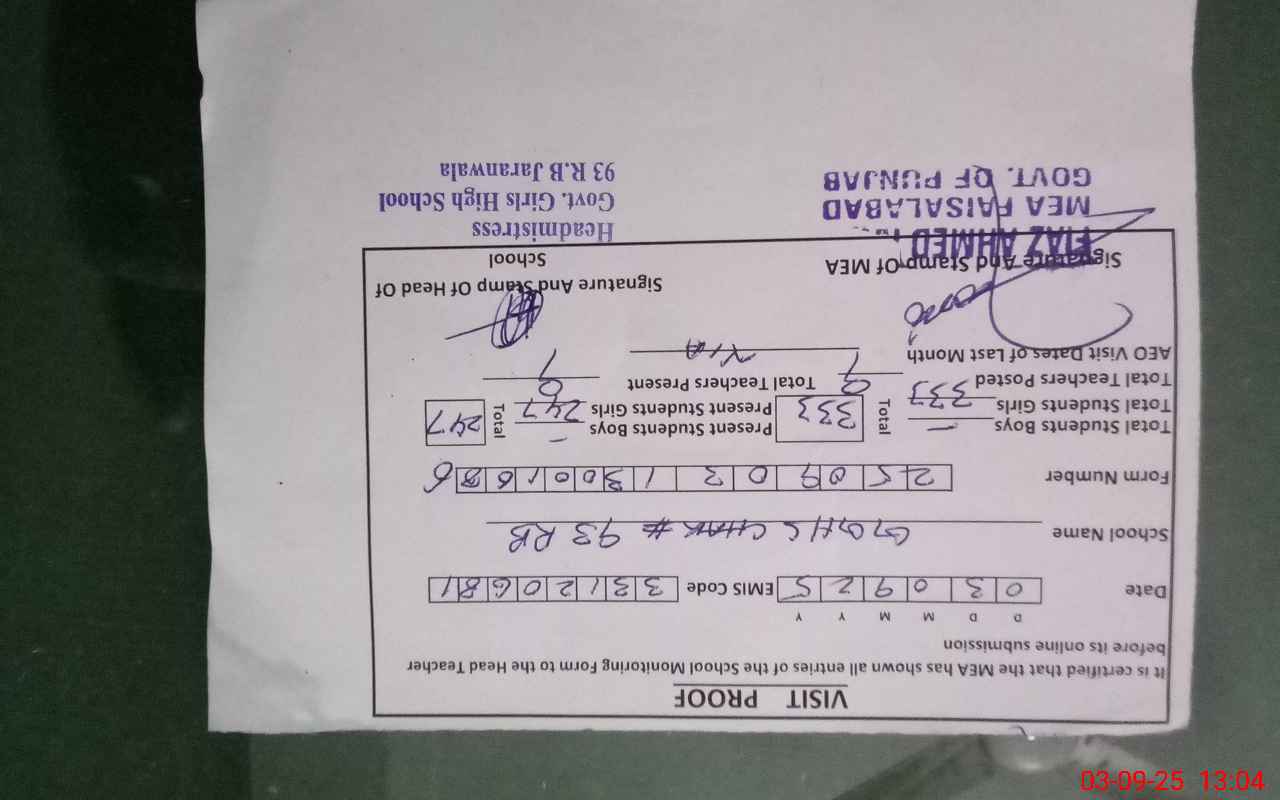 VISIT PROOF
It is certified that the MEA has shown all entries of the School Monitoring Form to the Head Teacher
before its online submission
D D M M Y Y
Date 0 3 0 9 2 5 EMIS Code 3 3 1 2 0 6 8 1
School Name GGHS CHAK # 93 RB
Form Number 2 5 0 9 0 3 1 3 0 0 1 0 8 6
Total Students Boys – Total 333 Present Students Boys – Total 247
Total Students Girls 333 Present Students Girls 247
Total Teachers Posted 9 Total Teachers Present 8
AEO Visit Dates of Last Month
Signature And Stamp Of MEA Signature And Stamp Of Head Of
School
FIAZ AHMED
MEA FAISALABAD
GOVT. OF PUNJAB
Headmistress
Govt. Girls High School
93 R.B Jaranwala
03-09-25 13:04